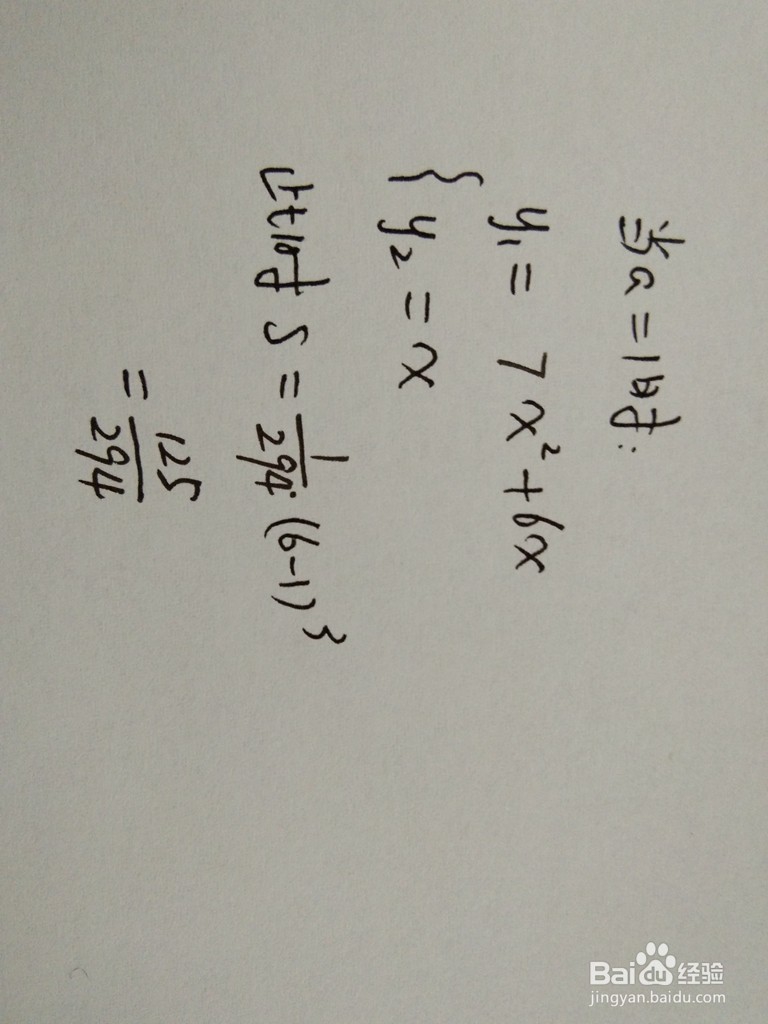 当a=1时:
y₁=7x²+6x
{
y₂=x
此时S=1/294·(6-1)³
=125/294
Baidu经验
jingyan.baidu.com